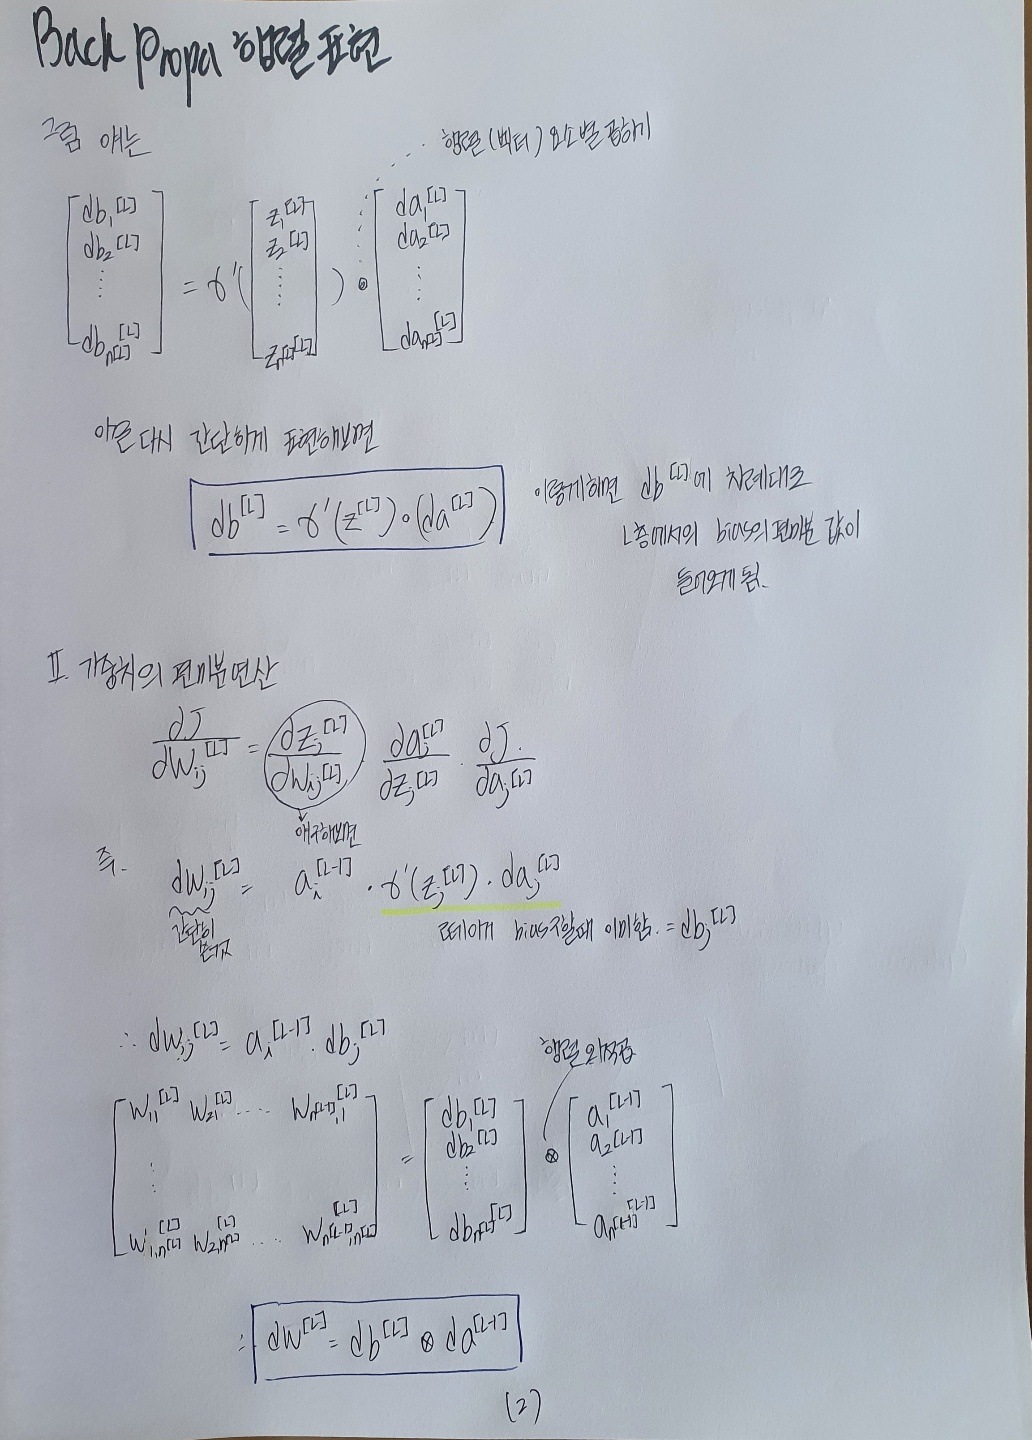 Back Propa 행렬 표현
그럼 얘는
행렬(벡터) 요소별 곱하기
[db₁^[L] db₂^[L] ⋮ db_n[L]^[L]] = σ'([z₁^[L] z₂^[L] ⋮ z_n[L]^[L]]) ∘ [da₁^[L] da₂^[L] ⋮ da_n[L]^[L]]
다시 간단하게 표현해보면
db^[L] = σ'(z^[L]) ∘ (da^[L])
이렇게하면 db^[L]에 차례대로
L층에서의 bias의 편미분 값이
들어오게 됨.
II. 가중치의 편미분 연산
∂J/∂W_ij^[L] = ∂z_j^[L]/∂w_ij^[L] · ∂a_j^[L]/∂z_j^[L] · ∂J/∂a_j^[L]
얘 구해보면
즉. dw_ij^[L] = a_i^[L-1] · σ'(z_j^[L]) · da_j^[L]
간단히
bias구할때 이미함. = db_j^[L]
∴ dw_ij^[L] = a_i^[L-1] · db_j^[L]
행렬 외적곱
[W₁₁^[L] W₂₁^[L] .... W_n[L-1],1^[L] ⋮ W_1,n[L]^[L] W_2,n[L]^[L] .... W_n[L-1],n[L]^[L]] = [db₁^[L] db₂^[L] ⋮ db_n[L]^[L]] ⊗ [a₁^[L-1] a₂^[L-1] ⋮ a_n[L-1]^[L-1]]
∴ dw^[L] = db^[L] ⊗ da^[L-1]
(2)